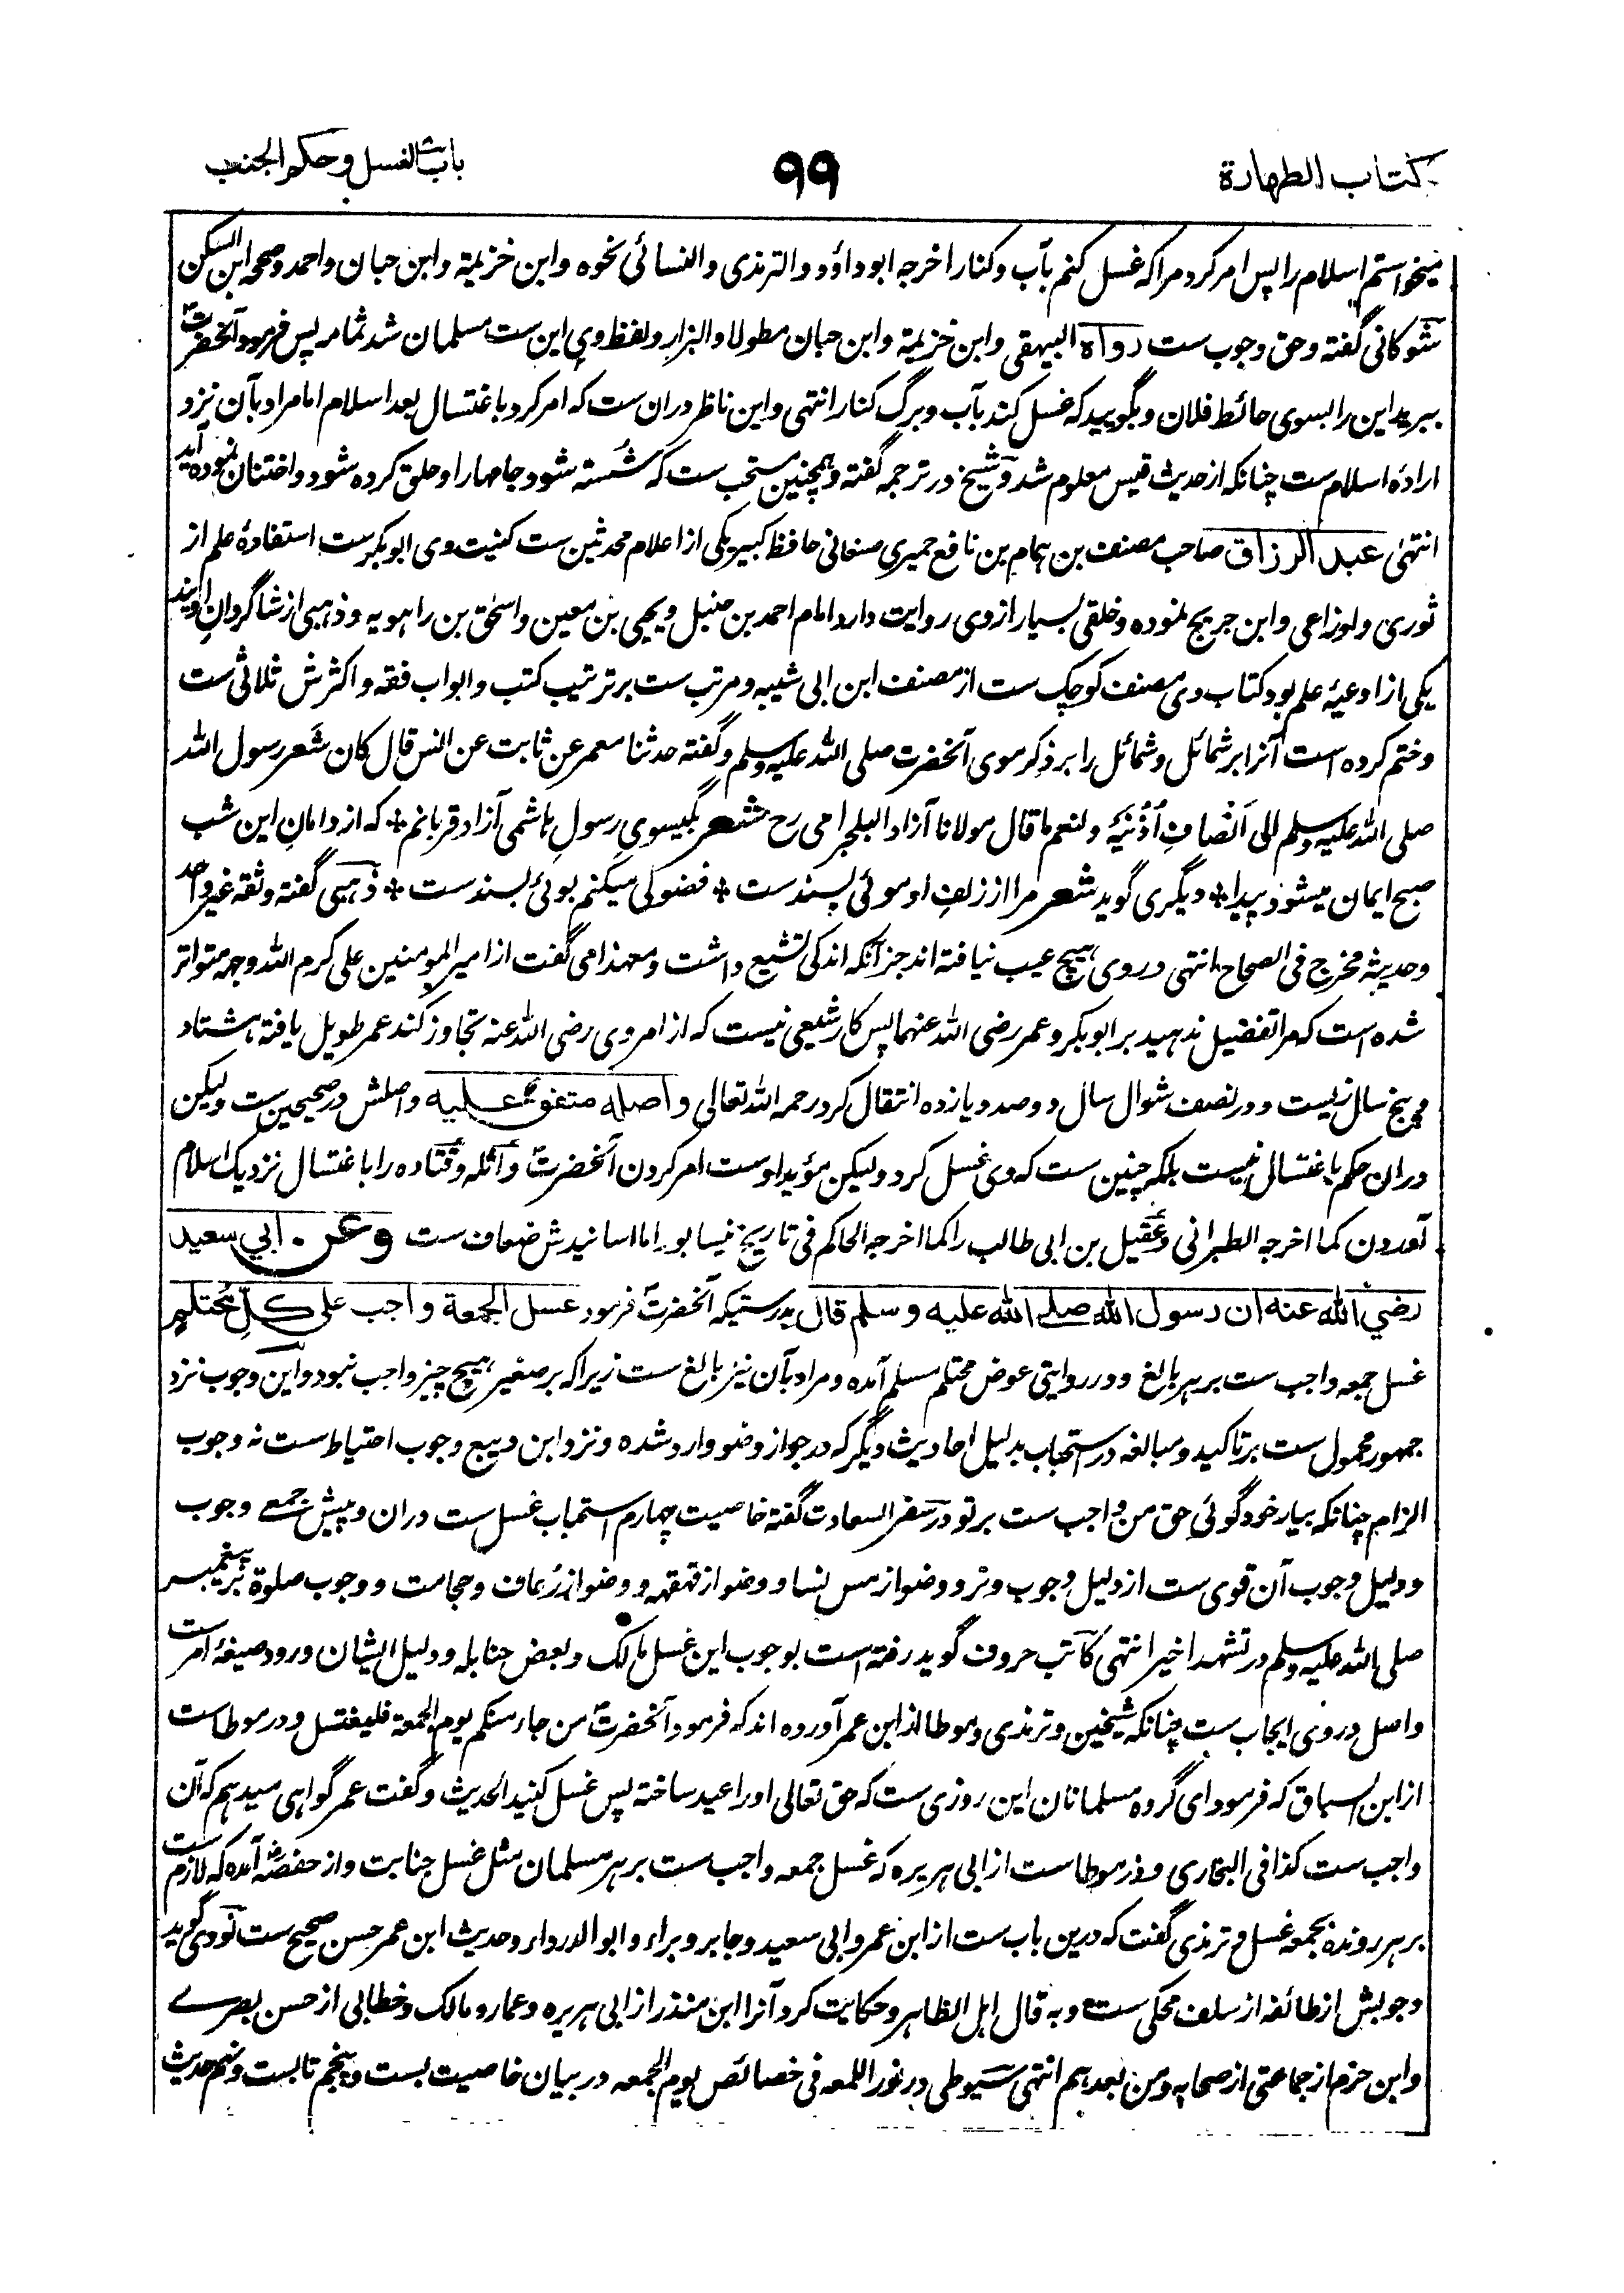 كتاب الطهارة
۹۹
باب الغسل وحكم الجنب
میخواستم اسلام را پس امر کرد مرا که غسل کنم بآب وکنار اخرجه ابوداؤد والترمذی والنسائی نحوه وابن خزیمة وابن حبان واحمد وصححه ابن السکن
شوکانی گفته وحق وجوب ست رواه البیهقی وابن خزیمة وابن حبان مطولا والبزار ولفظ وی این ست مسلمان شد ثمامه پس فرمود آنحضرت
ببرید این را بسوی حائط فلان وبگویید که غسل کند بآب وبرگ کنار انتهی واین ناظر دران ست که امر کرد باغتسال بعد اسلام اما مراد بآن نزد
ارادۀ اسلام ست چنانکه از حدیث قیس معلوم شد وشیخ در ترجمه گفته وهمچنین مستحب ست که شسته شود جامهارا وحلق کرده شود واختنان نموده آید
انتهی عبد الرزاق صاحب مصنف بن همام بن نافع حمیری صنعانی حافظ کبیر یکی از اعلام محدثین ست کنیت وی ابوبکر ست استفادۀ علم از
ثوری واوزاعی وابن جریج نموده وخلقی بسیار از وی روایت دارد امام احمد بن حنبل ویحیی بن معین واسحق بن راهویه وذهبی از شاگردان اویند
یکی از اوعیۀ علم بود کتاب وی مصنف کوچک ست از مصنف ابن ابی شیبه ومرتب ست بر ترتیب کتب وابواب فقه واکثرش ثلاثی ست
وختم کرده است آنرا بر شمائل وشمائل را بر ذکر موی آنحضرت صلی الله علیه وسلم وگفته حدثنا معمر عن ثابت عن انس قال کان شعر رسول الله
صلی الله علیه وسلم الی انصاف اُذُنیه ولنعم ما قال مولانا آزاد البلجرامی رح شعر بگیسوی رسول هاشمی آزاد قربانم * که از دامان این شب
صبح ایمان میشود پیدا * دیگری گوید شعر مرا از زلف او موئی پسندست * فضولی میکنم بوئی بسندست * ذهبی گفته وثقه غیر واحد
وحدیثه مخرج فی الصحاح انتهی در وی هیچ عیب نیافته اند جز آنکه اندکی تشیع داشت ومعهذا می گفت از امیر المومنین علی کرم الله وجهه متواتر
شده است که مرا تفضیل ندهید بر ابوبکر وعمر رضی الله عنهما پس کار شیعی نیست که از امر وی رضی الله عنه تجاوز کند عمر طویل یافته هشتاد
وپنج سال زیست ودر نصف شوال سال دوصد ویازده انتقال کرد رحمه الله تعالی واصله متفق علیه واصلش در صحیحین ست ولیکن
دران حکم باغتسال نیست بلکه چنین ست که وی غسل کرد ولیکن مؤید اوست امر کردن آنحضرت واثله وقتاده را باغتسال نزدیک اسلام
آوردن کما اخرجه الطبرانی وعقیل بن ابی طالب را کما اخرجه الحاکم فی تاریخ نیسابور اما اسانیدش ضعاف ست وعن ابي سعيد
رضي الله عنه ان رسول الله صلى الله عليه وسلم قال بدرستیکه آنحضرت فرمود غسل الجمعة واجب على كل محتلم
غسل جمعه واجب ست بر هر بالغ ودر روایتی عوض محتلم مسلم آمده ومراد بآن نیز بالغ ست زیرا که بر صغیر هیچ چیز واجب نبود واین وجوب نزد
جمهور محمول ست بر تاکید ومبالغه در استحباب بدلیل احادیث دیگر که در جواز وضو وارد شده ونزد ابن دیبع وجوب احتیاط ست نه وجوب
الزام چنانکه بیار خود گوئی حق من واجب ست بر تو در سفر السعادت گفته خاصیت چهارم استحباب غسل ست دران وپیش جمعے وجوب
ودلیل وجوب آن قوی ست از دلیل وجوب وتر ووضو از مس نسا ووضو از قهقهه ووضو از رعاف وحجامت ووجوب صلوة بر پیغمبر
صلی الله علیه وسلم در تشهد اخیر انتهی کاتب حروف گوید رفته است بوجوب این غسل مالک وبعض حنابله ودلیل ایشان ورود صیغۀ امر ست
واصل در وی ایجاب ست چنانکه شیخین وترمذی وموطا از ابن عمر آورده اند که فرمود آنحضرت من جاء منکم یوم الجمعة فلیغتسل ودر موطا ست
از ابن السباق که فرمود ای گروه مسلمانان این روزی ست که حق تعالی اورا عید ساخته پس غسل کنید الحدیث وگفت عمر گواهی میدهم که آن
واجب ست کذا فی البخاری ودر موطا ست از ابی هریره که غسل جمعه واجب ست بر هر مسلمان مثل غسل جنابت واز حفصه آمده که لازم ست
بر هر رونده بجمعه غسل وترمذی گفت که درین باب ست از ابن عمر وابی سعید وجابر وبراء وابو الدرداء وحدیث ابن عمر حسن صحیح ست نووی گوید
وجوبش از طائفه از سلف محکی ست وبه قال اهل الظاهر وحکایت کرد آنرا ابن منذر از ابی هریره وعمار ومالک وخطابی از حسن بصرے
وابن حزم از جماعتی از صحابه ومن بعدهم انتهی سیوطی در نور اللمعه فی خصائص یوم الجمعه در بیان خاصیت بست وپنجم تا بست ونهم حدیث